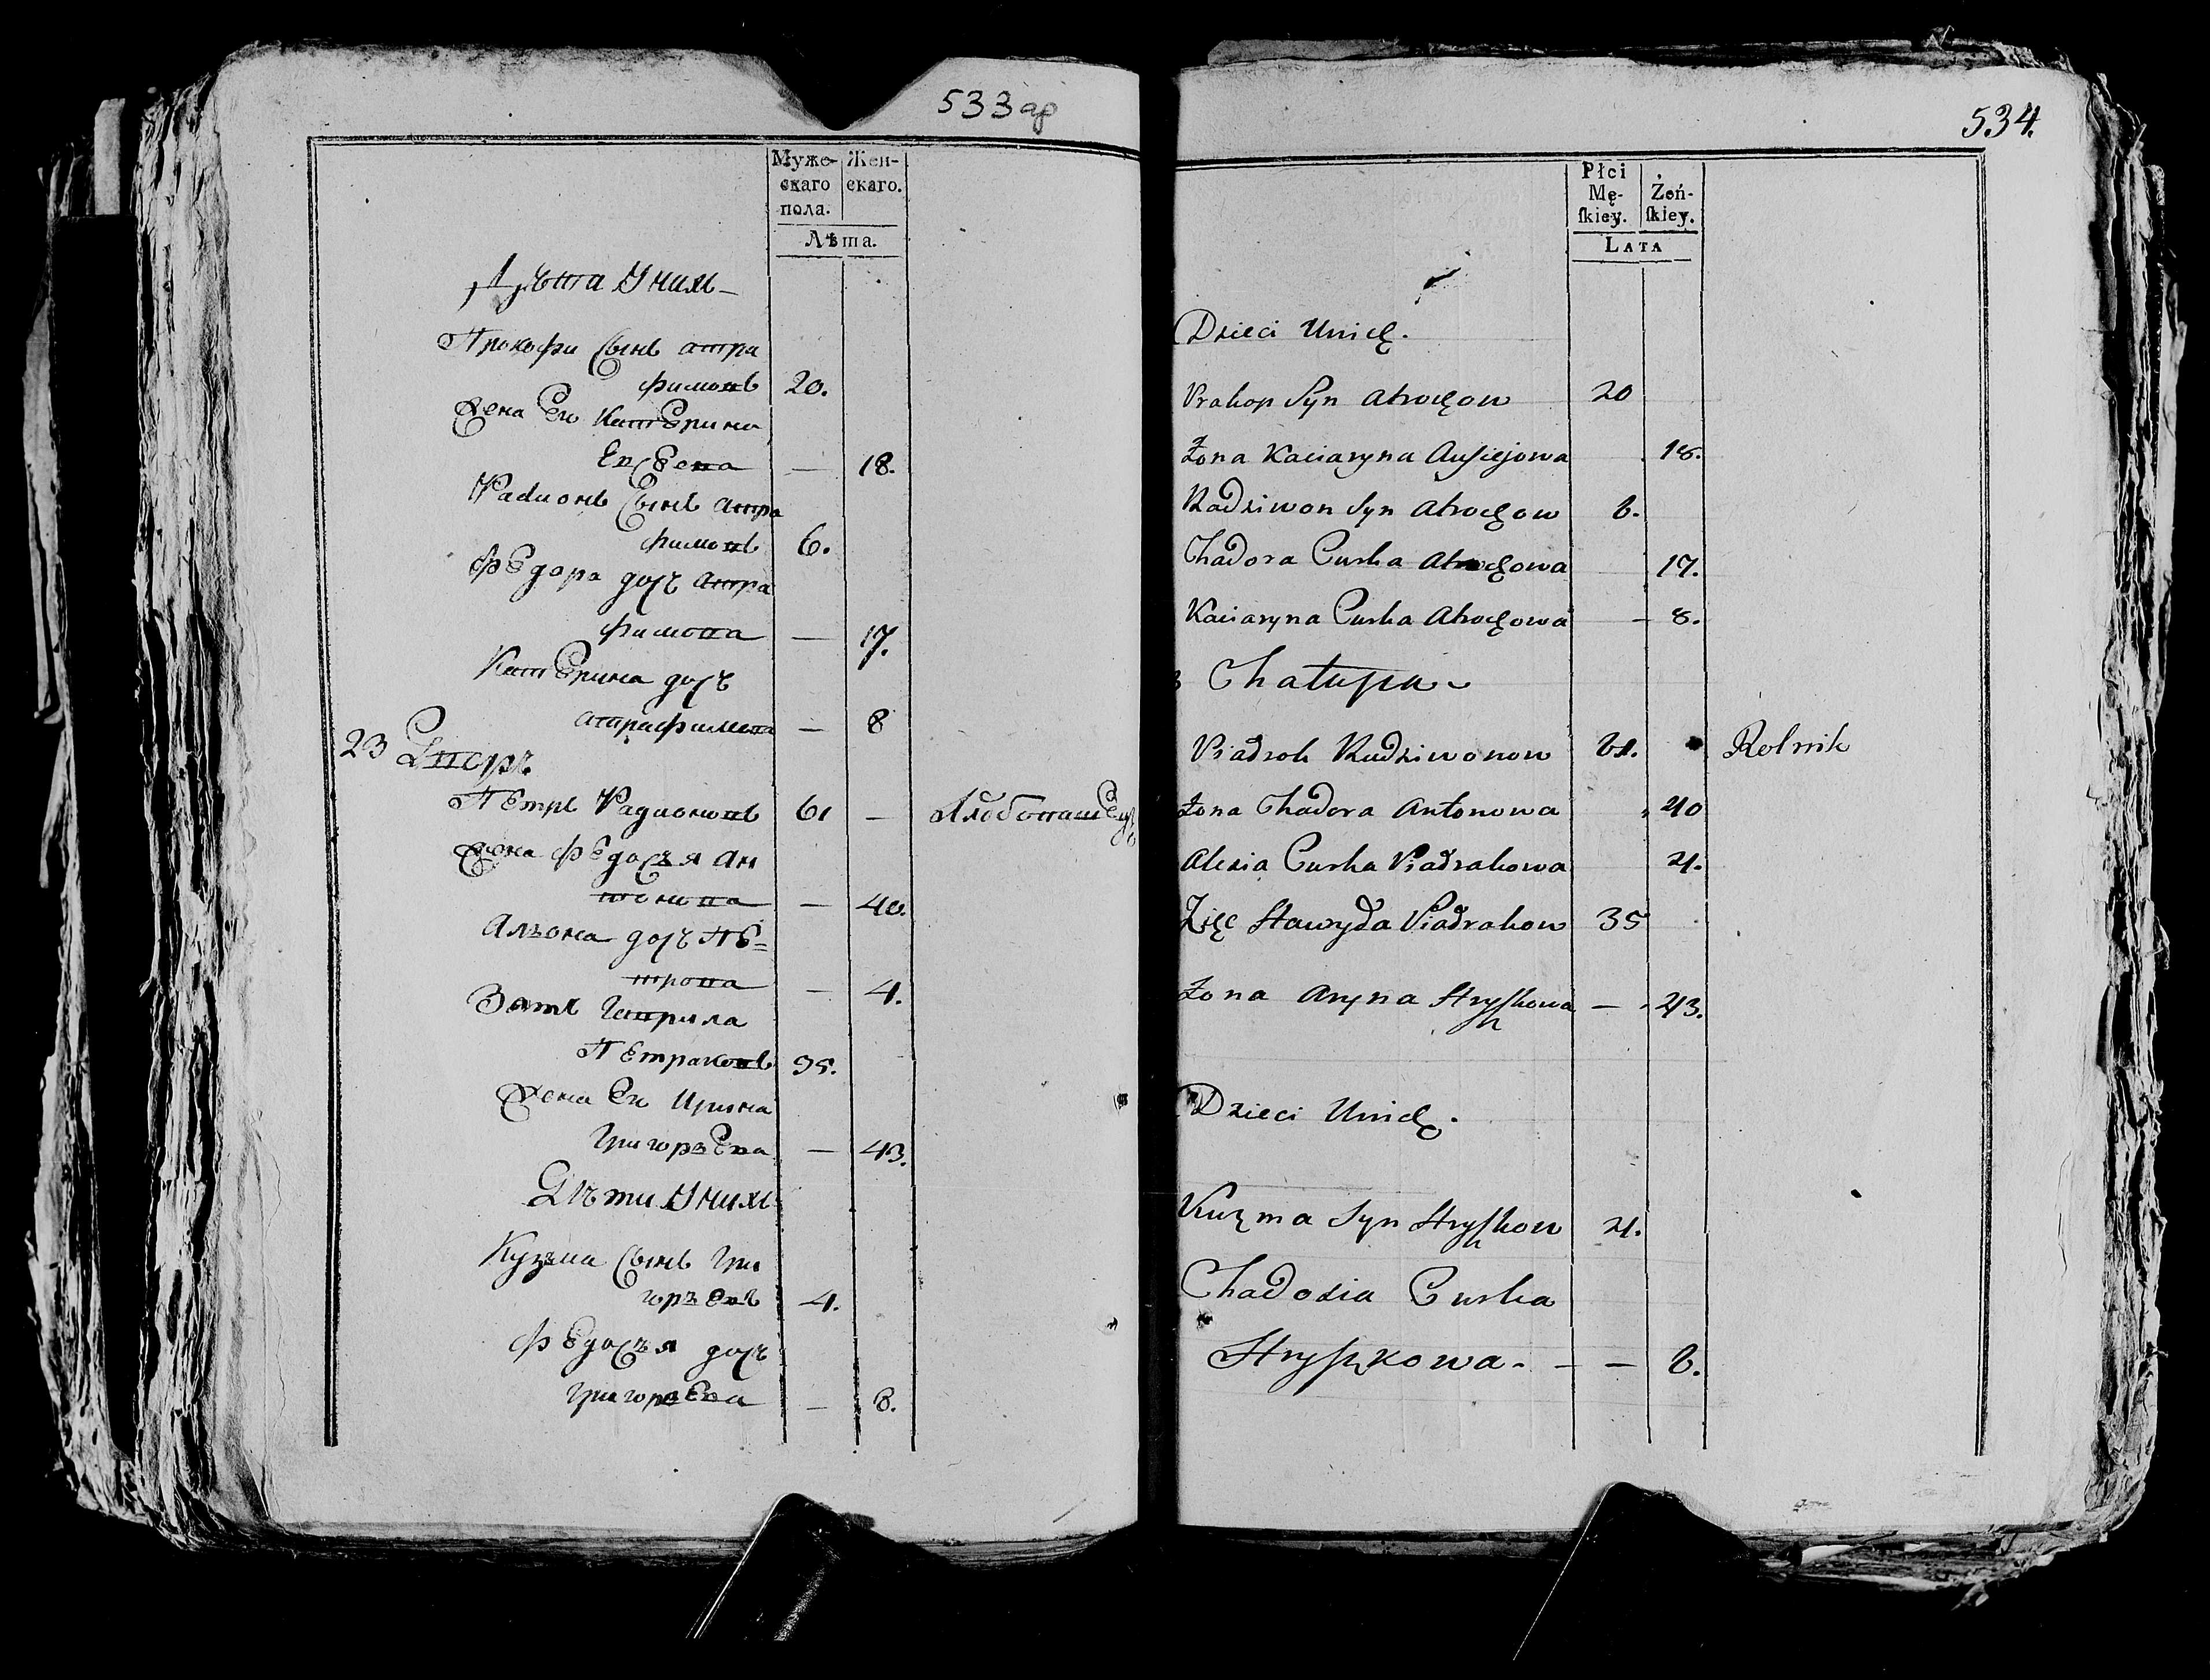 533 ар
Муже-
скаго
пола.
Жен-
скаго.
Лѣта.
Дѣти Унихъ
Прокофи Сынъ атра
фимовъ 20.
Жена Ею КатЕрина
— 18.
Радионъ Сынъ атра
фимовъ 6.
ФЕдора дочъ атра
фимова — 17.
КатЕрина дочъ
атрафимова — 8
23 Дворъ
ПЕтръ Радионовъ 61 —
Жена ФЕдосъя Ан
тонова — 40.
Алъона дочъ ПЕ=
трова — 4.
Зять Гаврила
ПЕтраковъ 35.
Жена Ею Ирина
ГригоръЕва — 43.
Дѣти Унихъ
Кузма Сынъ Гри
горъЕвъ 4.
ФЕдосъя дочъ
ГригоръЕва — 6.
534.
Płci
Mę-
ſkiey.
Żeń-
ſkiey.
LATA
Dzieci Unich.
Prakop Syn atrochow 20
Żona Kaciaryna Ausiejowa 18.
Radziwon Syn atrochow 6.
Chadora Curka atrochowa 17.
Kaciaryna Curka atrochowa — 8.
3 Chałupa
Piadrok Radziwonow 61. Rolnik
Żona Chadora Antonowa 40
Alezia Curka Piadrakowa 4.
Zięc Hawryła Piadrakow 35
Żona Aryna Hryszkowa — 43.
Dzieci Unich.
Kuzma Syn Hryszkow 4.
Chadozia Curka
Hryszkowa. — — 6.